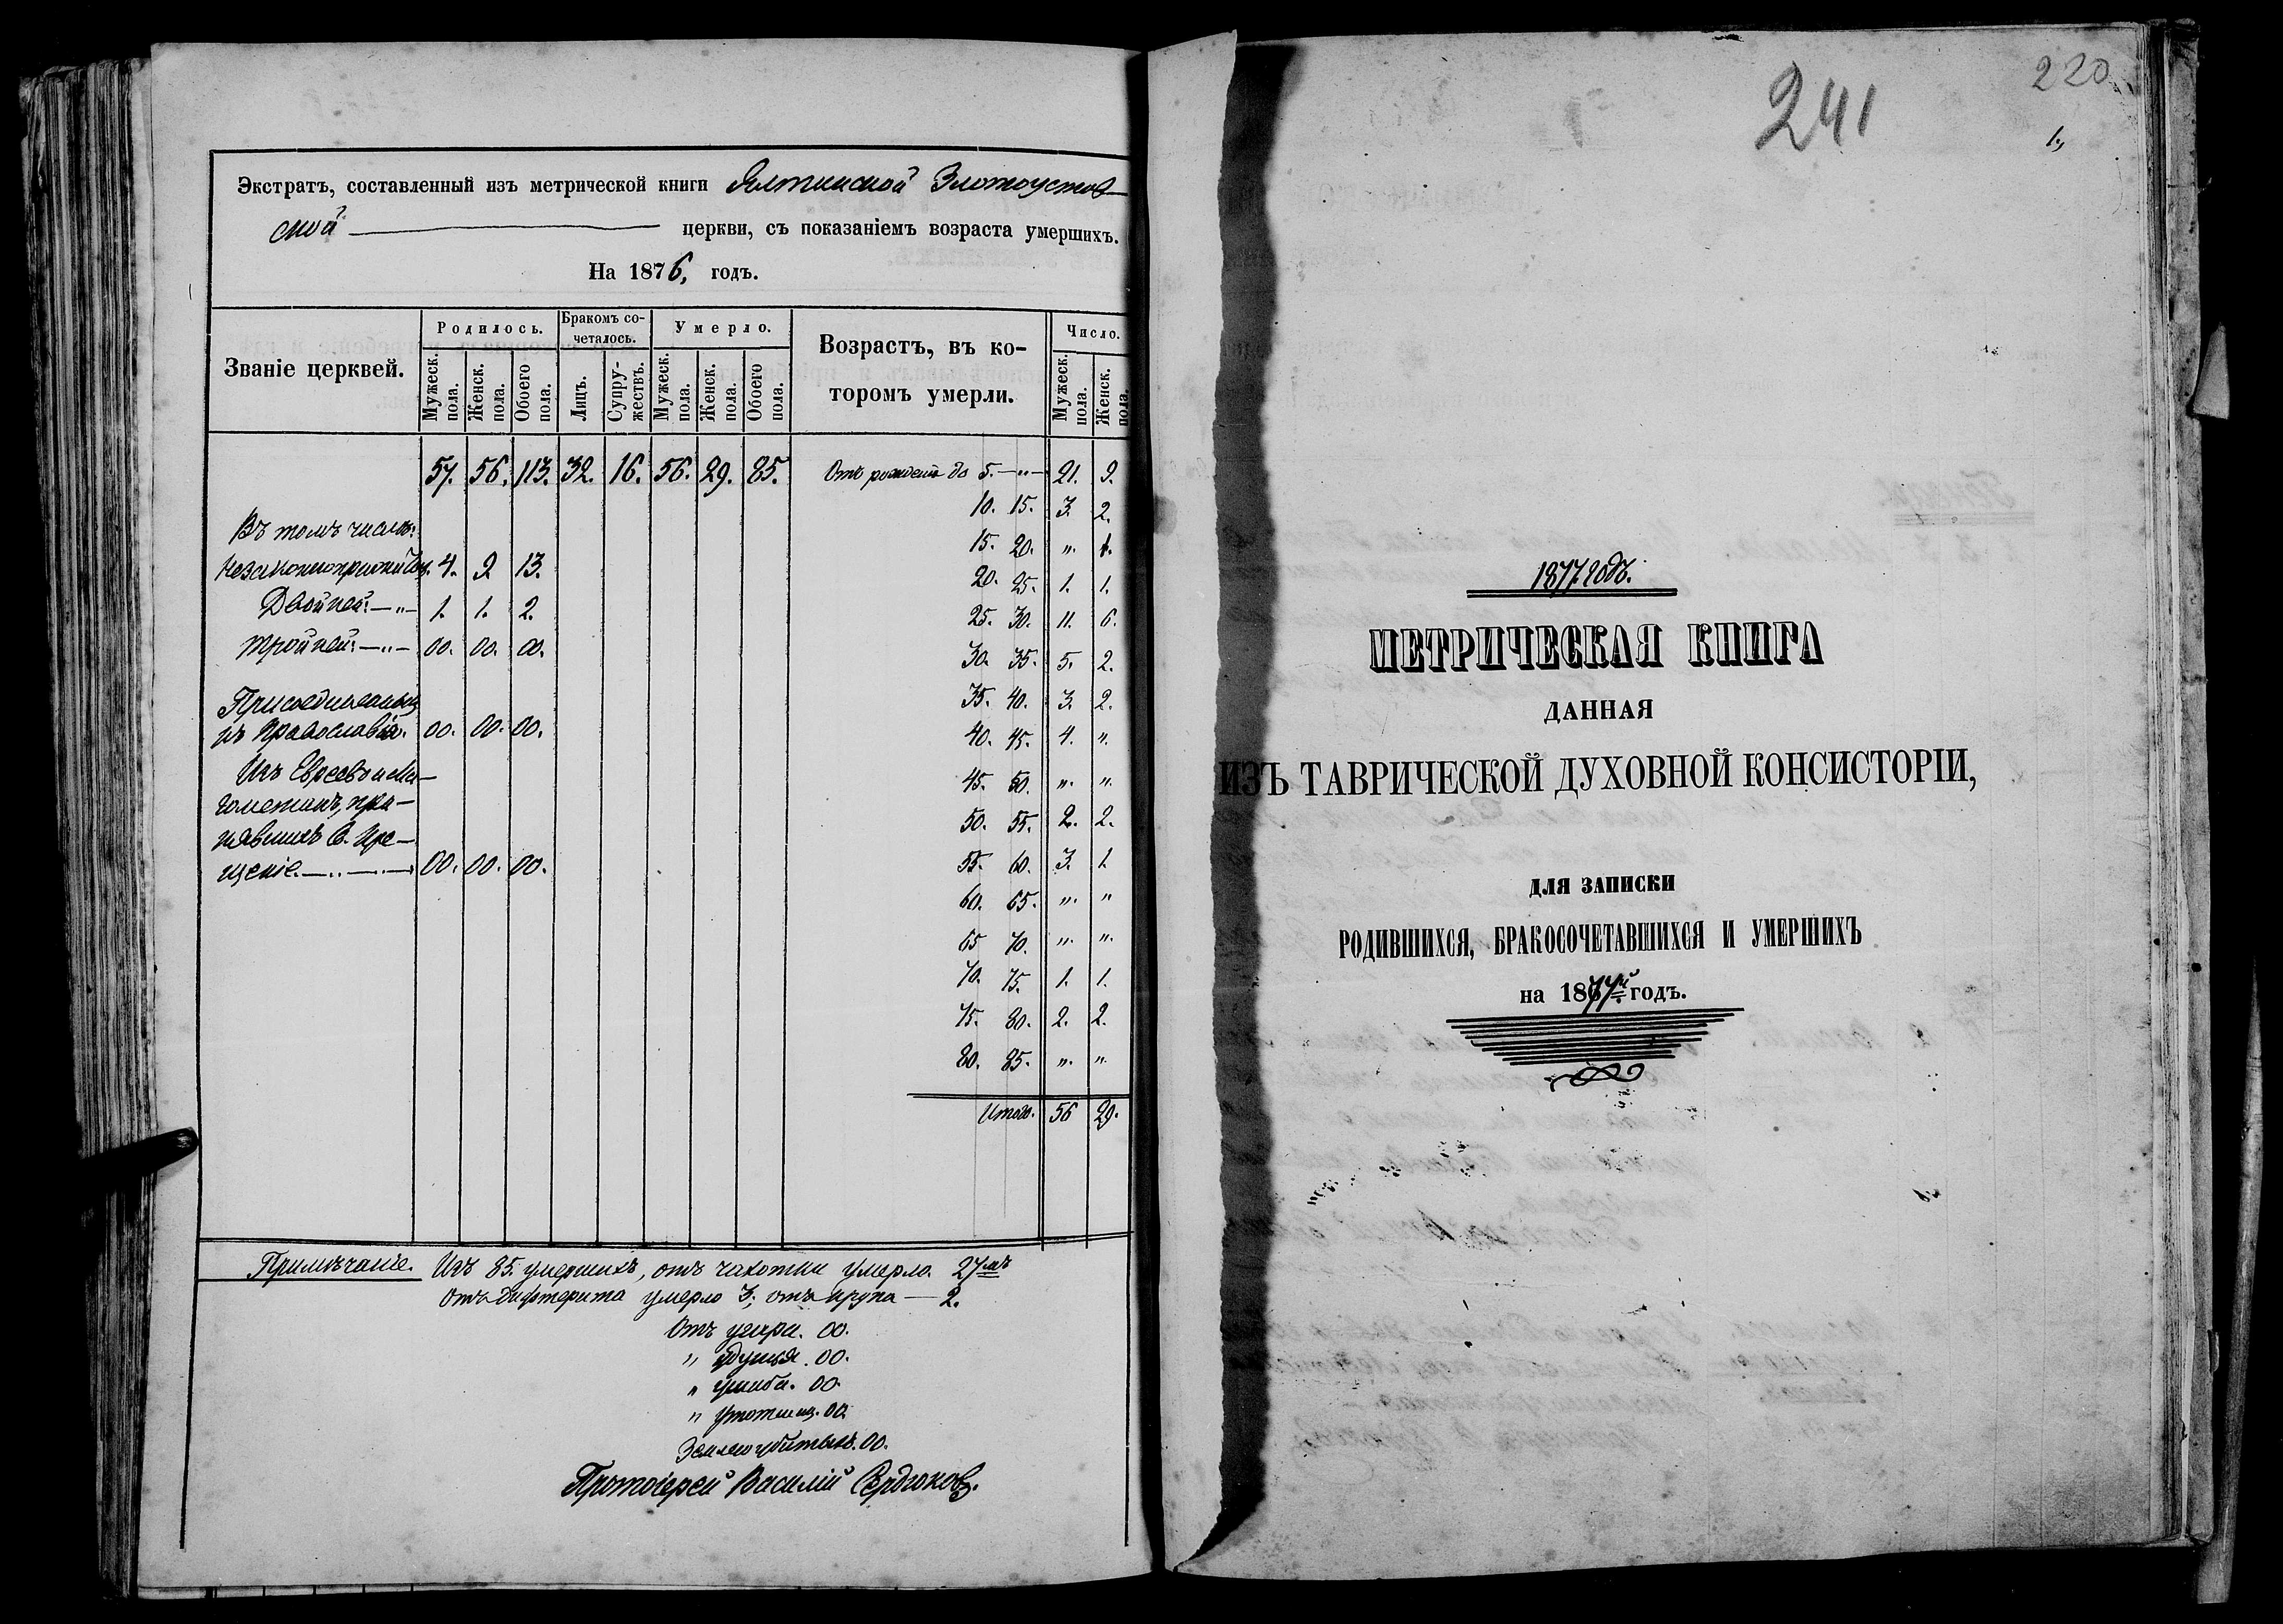 Экстратъ, составленный изъ метрической книги Ялтинской Златоустов-
ской церкви, съ показаніемъ возраста умершихъ.
На 1876, годъ.
Званіе церквей.
Родилось.
Бракомъ со-
четалось.
Умерло.
Возрастъ, въ ко-
торомъ умерли.
Число.
Мужеск. пола.
Женск. пола.
Обоего пола.
Лицъ.
Супру-
жествъ.
Мужеск. пола.
Женск. пола.
Обоего пола.
Мужеск. пола.
Женск. пола.
57. 56. 113. 32. 16. 56. 29. 85. Отъ рожденія до 5.—"— 21. 9.
10. 15. 3. 2.
Въ томъ числѣ:
15. 20. ". 1.
Незаконноприжит. 4. 9 13.
20. 25. 1. 1.
Двойней:—"— 1. 1. 2.
25. 30. 11. 6.
Тройней:—"— 00. 00. 00.
30. 35. 5. 2.
Присоединенныхъ
35. 40. 3. 2.
къ Православію. 00. 00. 00.
40. 45. 4. ".
Изъ Евреевъ и Ма-
45. 50. ". ".
гометанъ, при-
50. 55. 2. 2.
нявшихъ Св. Кре-
щеніе.—..—.— 00. 00. 00.
55. 60. 3. 1.
60. 65. ". "
65 70. ". ".
70. 75. 1. 1.
75. 80. 2. 2.
80. 85. ". ".
Итого. 56 29.
Примѣчаніе. Изъ 85. умершихъ, отъ чахотки умерло. 27мь
Отъ дифтерита умерло 3; отъ крупа — 2.
Отъ угара. 00.
" удушья. 00.
" ушиба. 00.
" 00.
00.
Протоіерей Василій Сердюковъ.
241
220
1,
1877 годъ.
МЕТРИЧЕСКАЯ КНИГА
ДАННАЯ
ИЗЪ ТАВРИЧЕСКОЙ ДУХОВНОЙ КОНСИСТОРІИ,
ДЛЯ ЗАПИСКИ
РОДИВШИХСЯ, БРАКОСОЧЕТАВШИХСЯ И УМЕРШИХЪ
на 1877й годъ.